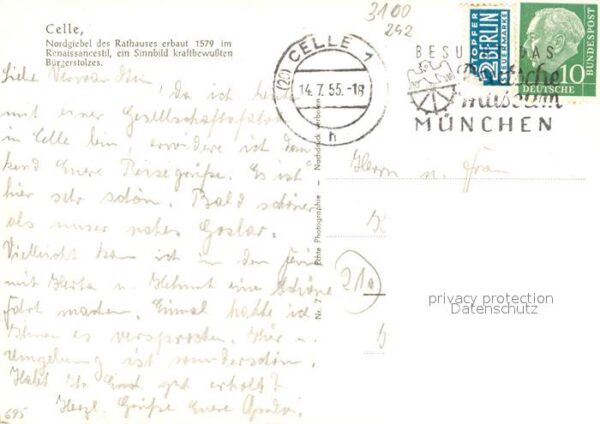 Celle,
Nordgiebel des Rathauses erbaut 1579 im
Renaissancestil, ein Sinnbild kraftbewußten
Bürgerstolzes.
Liebe Verwandten! Da ich heute
mit einer Gesellschaftsfahrt
in Celle bin, erwidere ich dan
kend Euere Reisegrüße. Es ist
hier sehr schön. Bald schöner
als unser nahes Goslar.
Vielleicht kann ich in den
mit Herta u. Helmut eine schöne
Fahrt machen. Einmal hatte ich
Ihnen es versprochen. Hier u.
Umgebung ist wunderschön.
Habt Ihr Euch gut erholt?
Herzl. Grüße Euere
695
3100
242
(20) CELLE 1
14.7.55.-18
h
BESUCHT DAS
Deutsche
Museum
MÜNCHEN
NOTOPFER
2 BERLIN
STEUERMARKE
DEUTSCHE
BUNDESPOST
10
Herrn u. Frau
Nr. 7
Echte Photographie - Nachdruck verboten
21a
privacy protection
Datenschutz